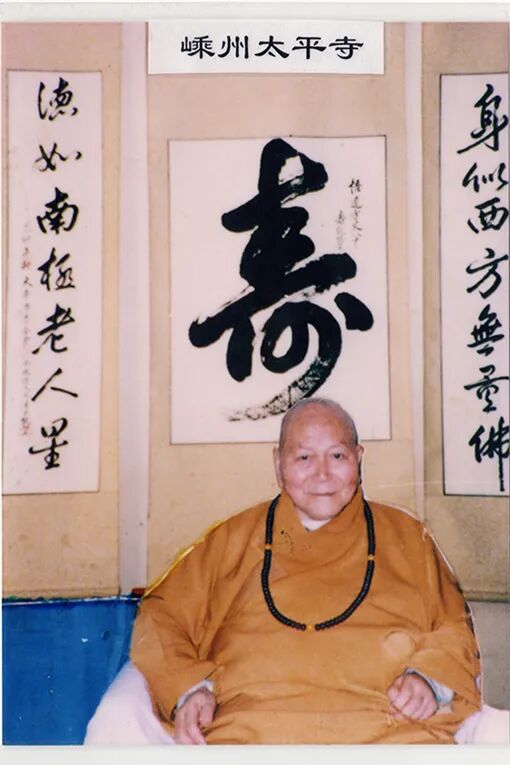 嵊州太平寺
身似西方無量佛
寿
德如南極老人星